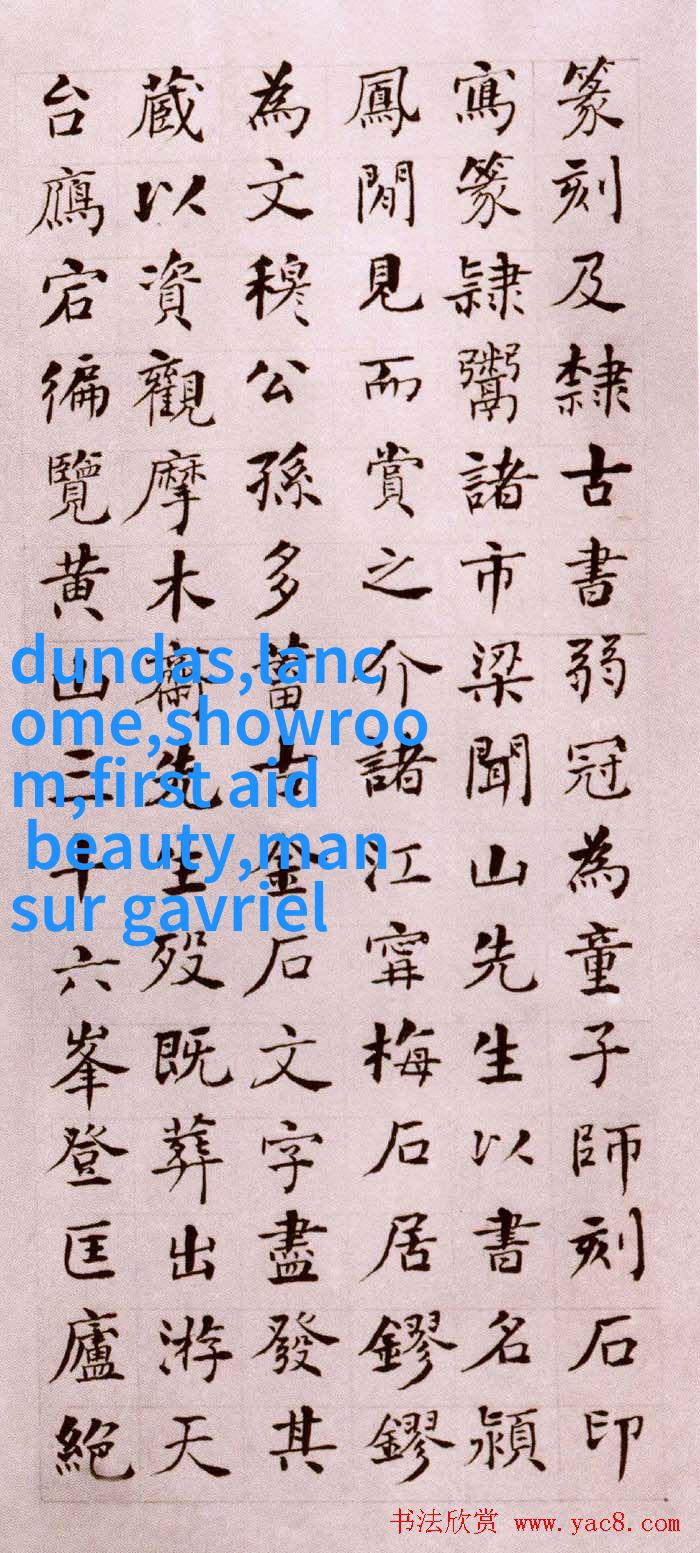 篆刻及隸古書弱冠為童子師刻石印
寫篆隸鬻諸市梁聞山先生以書名潁
鳳閒見而賞之介諸江寧梅石居鏐鏐
為文穆公孫多蓄古金石文字盡發其
蔵以資觀摩木齋先生歿既葬出游天
台鴈宕徧覽黄山三十六峯登匡廬絕
dundas,lanc
ome,showroo
m,first aid
beauty,man
sur gavriel
书法欣赏 www.yac8.com